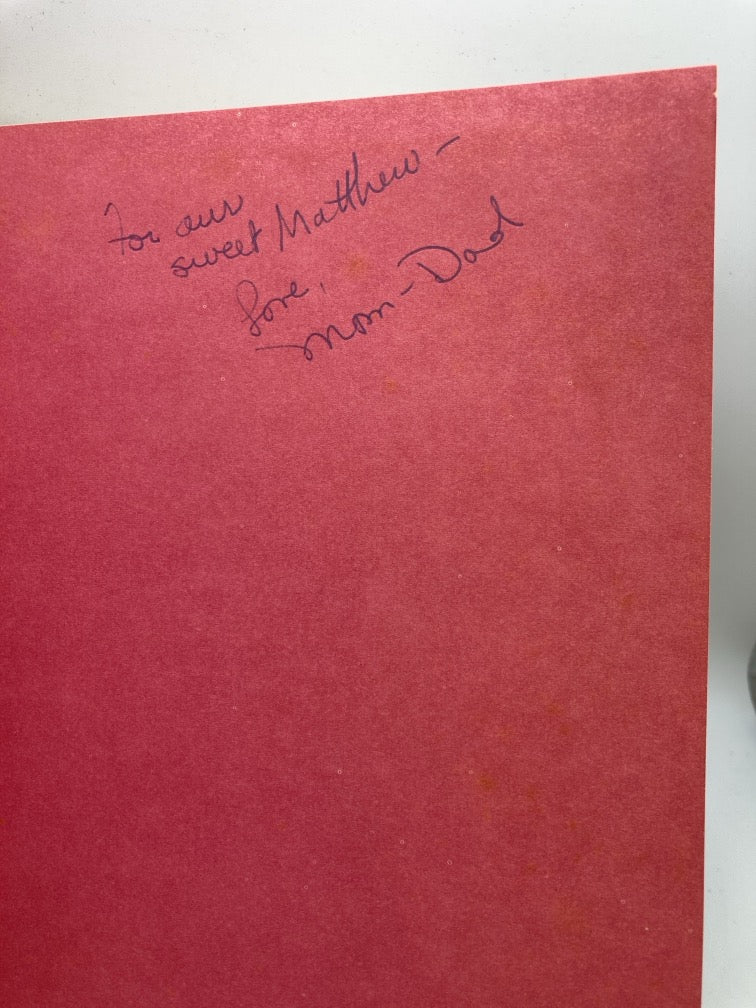 For our
sweet Matthew -
Love,
Mom - Dad